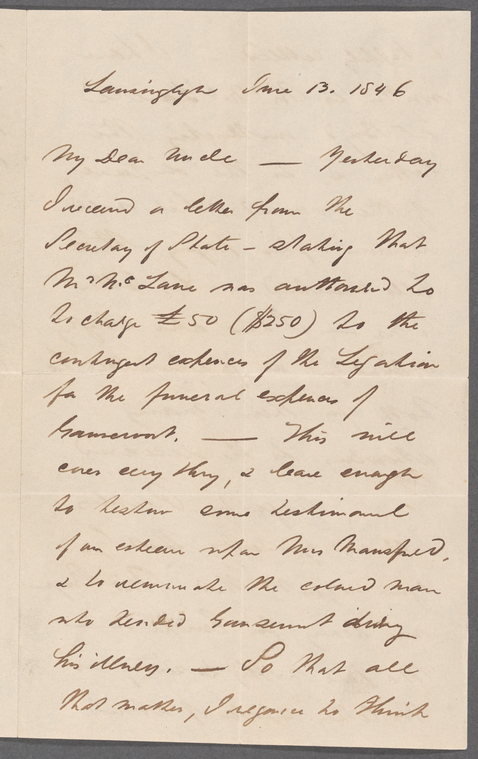 Lansingburgh June 13. 1846
My Dear Uncle — Yesterday
I received a letter from the
Secretary of State — stating that
Mr McLane was authorised to
to charge £50 ($250) to the
contingent expences of the Legation
for the funeral expences of
Gansevoort. — This will
cover every thing, & leave enough
to bestow some testimonial
of our esteem upon Mrs Mansfield,
& to remunerate the colored man
who tended Gansevoort during
his illness. — So that all
that matter, I rejoice to think